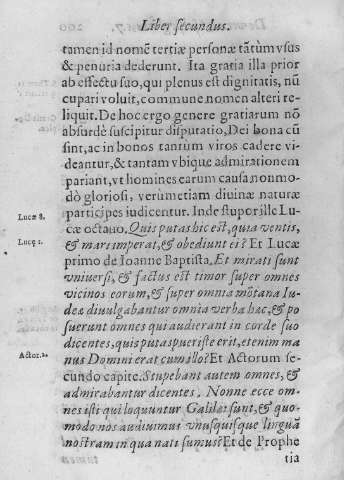 Liber secundus.
tamen id nomẽ tertiæ personæ tãtùm vsus
& penuria dederunt. Ita gratia illa prior
ab effectu suo, qui plenus est dignitatis, nũ
cupari voluit, commune nomen alteri re-
liquit. De hoc ergo genere gratiarum nõ
absurdè suscipitur disputatio, Dei bona cũ
sint, ac in bonos tantum viros cadere vi-
deantur, & tantam vbique admirationem
pariant, vt homines earum causa non mo-
dò gloriosi, verùm etiam diuinæ naturæ
participes iudicentur. Inde stupor ille Lu-
cæ octauo. Quis putas hic est, quia ventis,
Lucæ 8.
& mari imperat, & obediunt ei? Et Lucæ
Lucę 1.
primo de Ioanne Baptista. Et mirati sunt
vniuersi, & factus est timor super omnes
vicinos eorum, & super omnia mõtana Iu-
deæ diuulgabantur omnia verba hæc, & po
suerunt omnes qui audierant in corde suo
dicentes, quis putas puer iste erit, etenim ma
nus Domini erat cum illo? Et Actorum se-
Actor. 2.
cundo capite. Stupebant autem omnes, &
admirabantur dicentes. Nonne ecce om-
nes isti qui loquuntur Galilæi sunt, & quo-
modo nos audiuimus vnusquisque linguã
nostram in qua nati sumus? Et de Prophe
tia